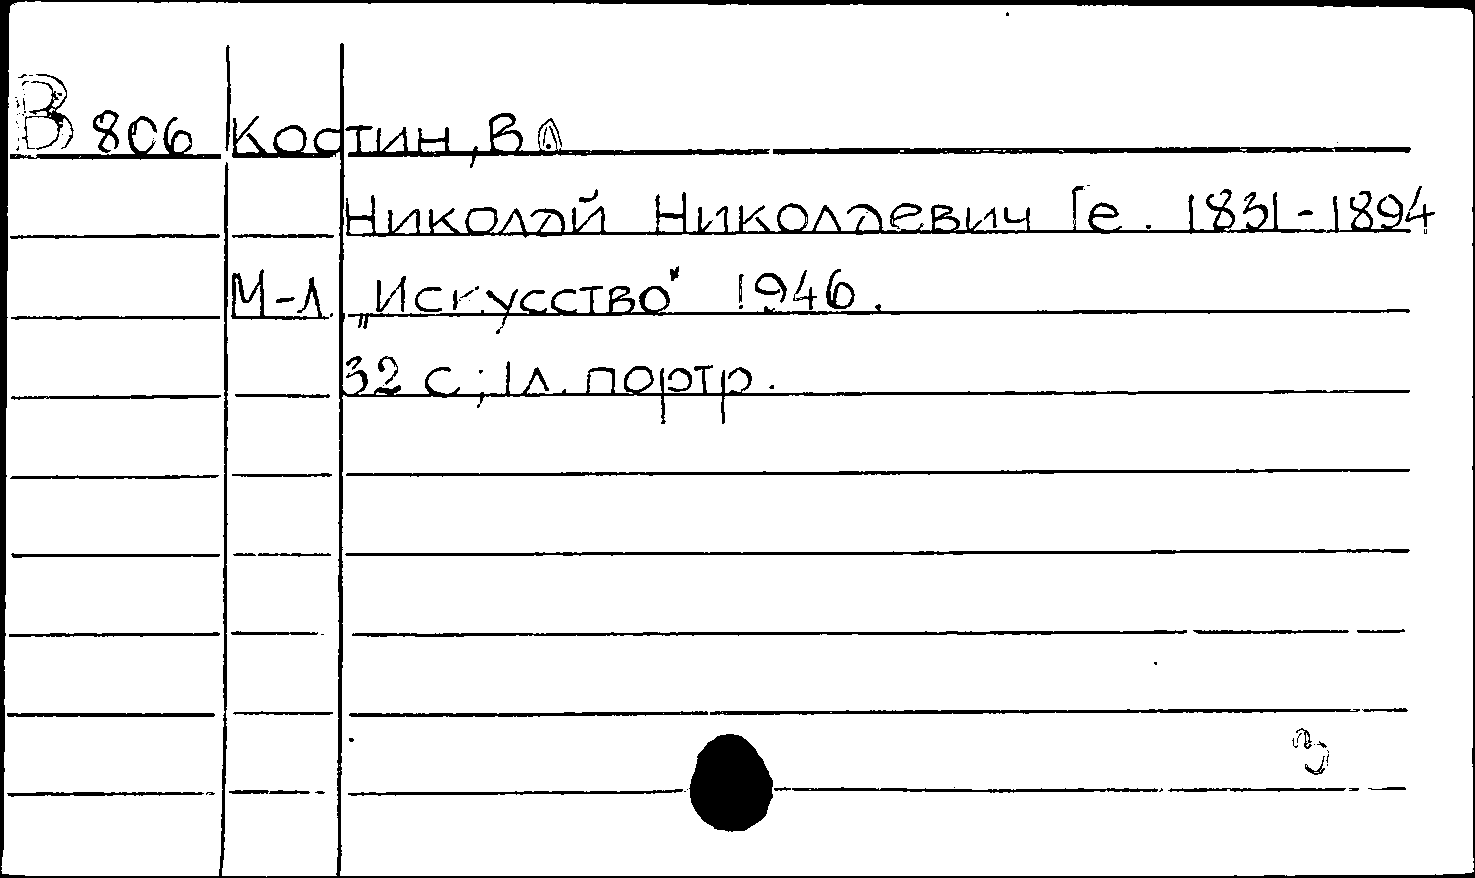 В 806 Костин, В
Николай Николаевич Ге. 1831-1894
М-Л. „Искусство" 1946.
32 с; 1 л. портр.